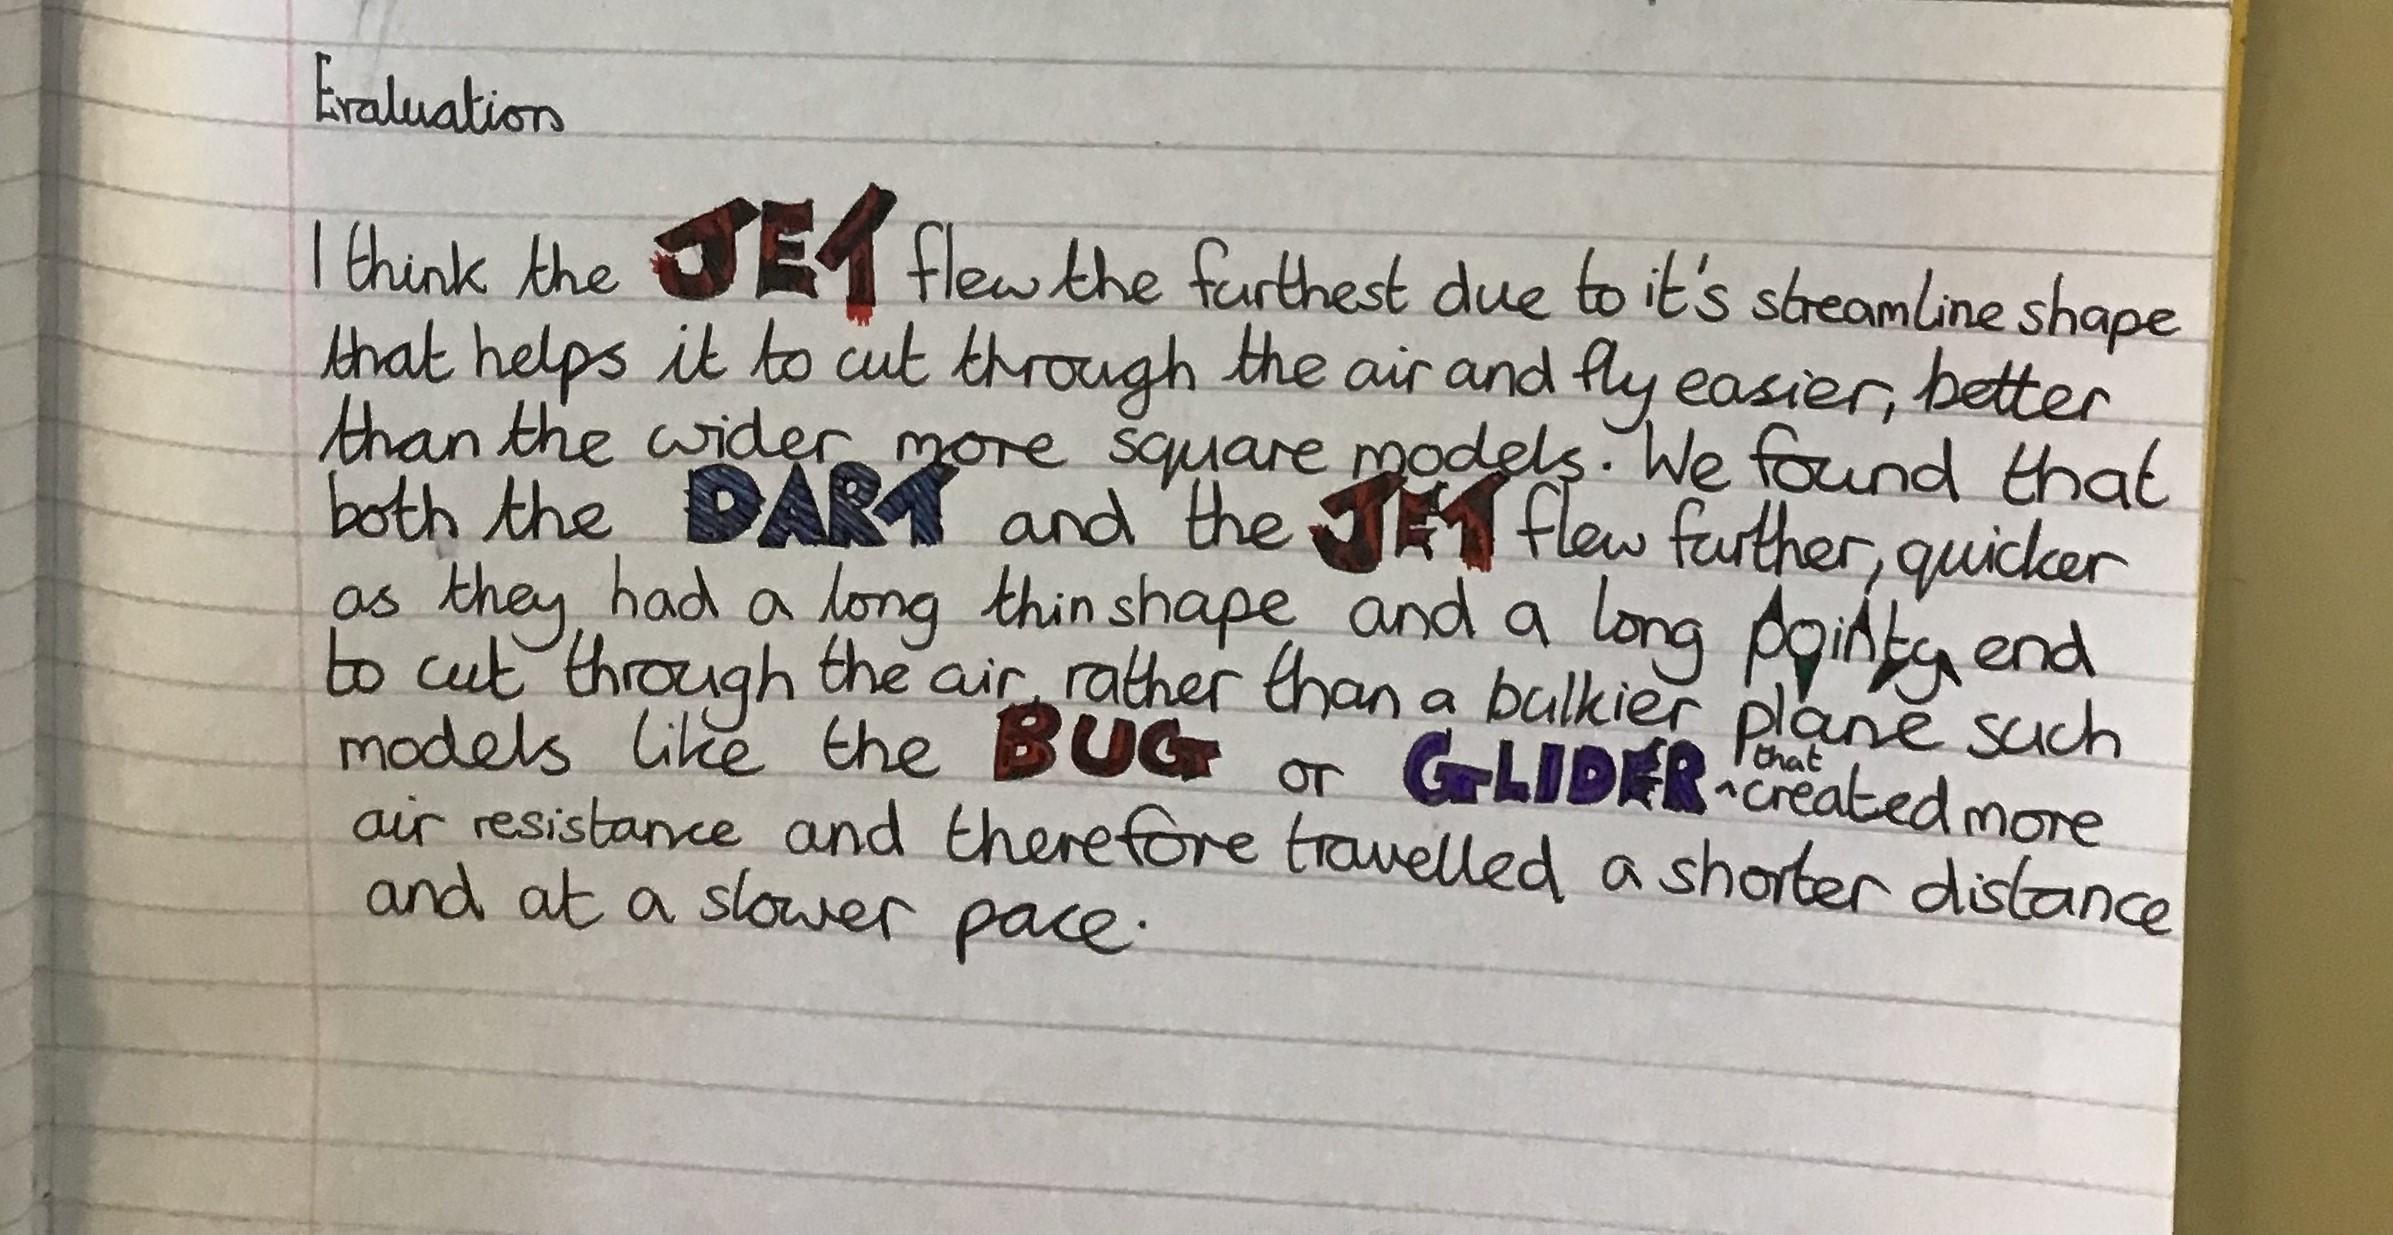 Evaluation
I think the JET flew the furthest due to it's streamline shape
that helps it to cut through the air and fly easier, better
than the wider more square models. We found that
both the DART and the JET flew further, quicker
as they had a long thin shape and a long pointy end
to cut through the air, rather than a bulkier plane such
models like the BUG or GLIDER ^that created more
air resistance and therefore travelled a shorter distance
and at a slower pace.